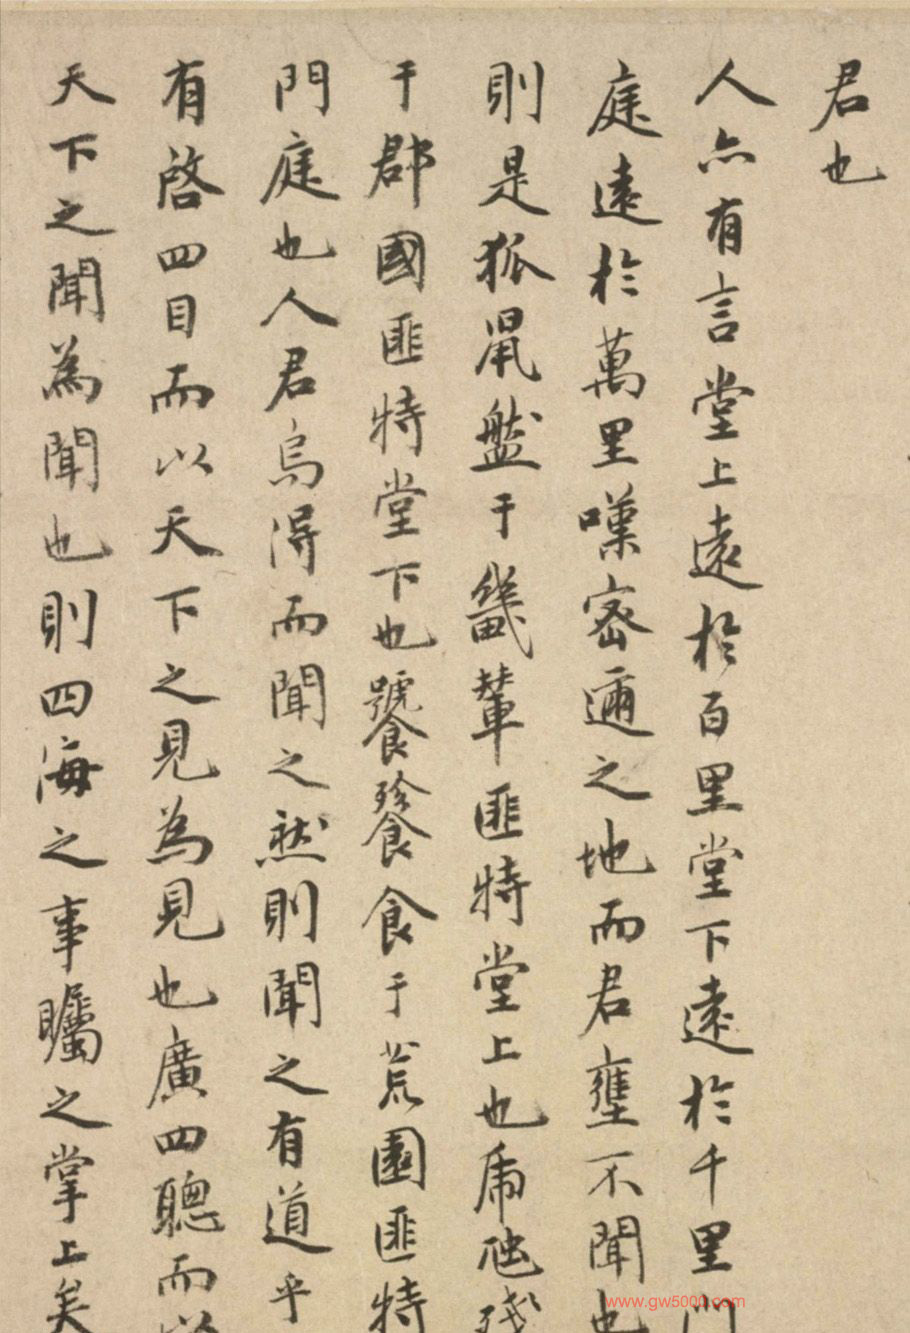 君也
人亦有言堂上遠於百里堂下遠於千里門
庭遠於萬里嘆密邇之地而君壅不聞也
則是狐鼠盤于畿輦匪特堂上也虎虺殘
于郡國匪特堂下也饕餮食于荒圉匪特
門庭也人君烏得而聞之然則聞之有道乎
有啓四目而以天下之見為見也廣四聰而以
天下之聞為聞也則四海之事矚之掌上矣
www.gw5000.com